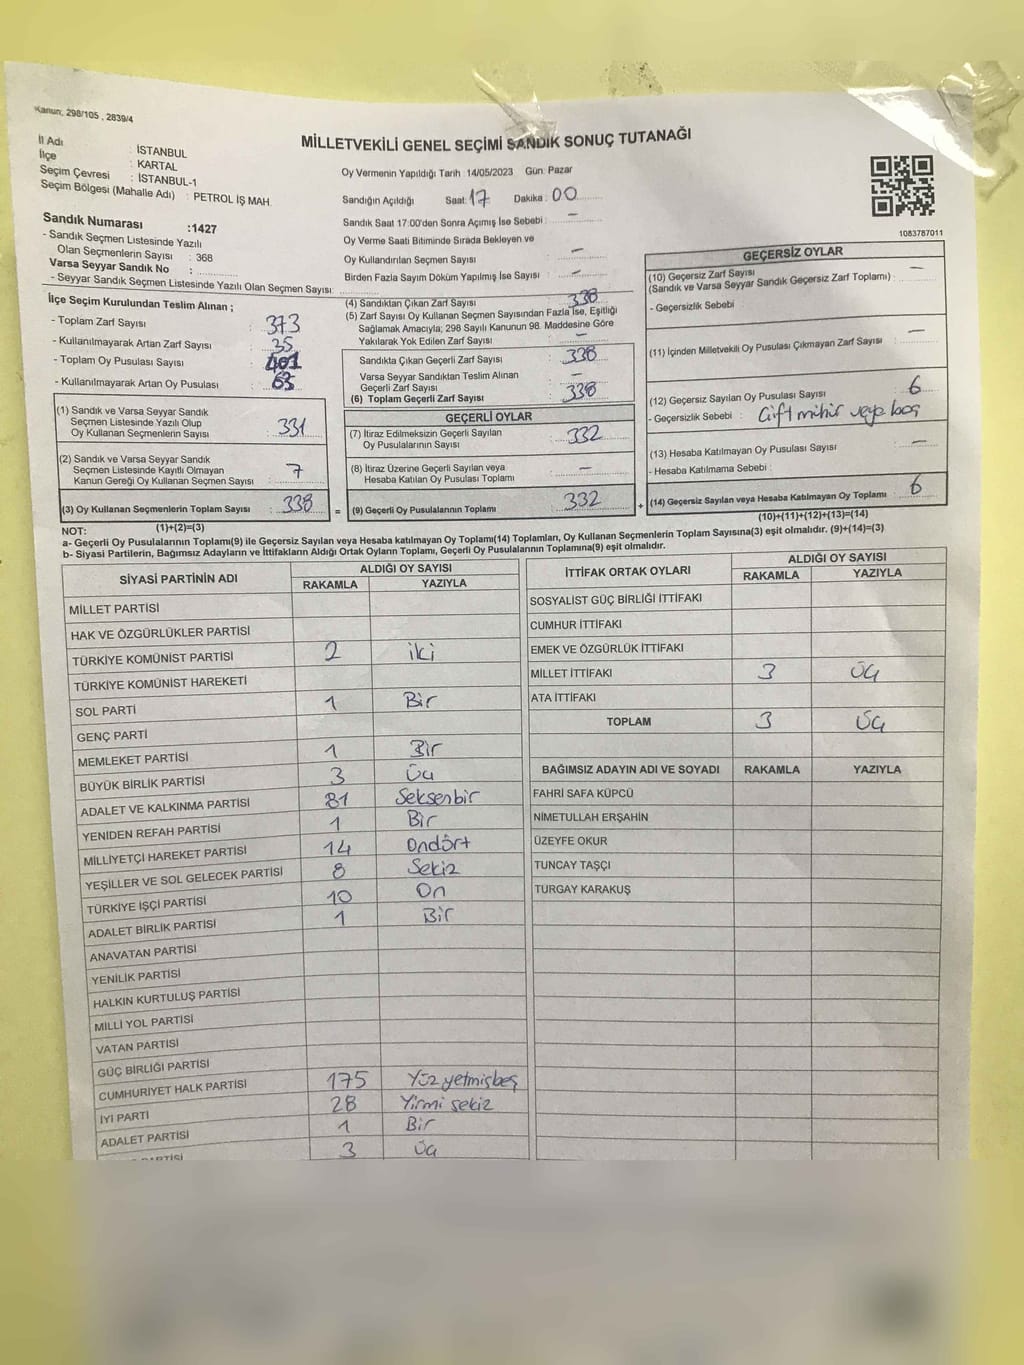 Kanun, 298/105 , 2839/4
MİLLETVEKİLİ GENEL SEÇİMİ SANDIK SONUÇ TUTANAĞI
İl Adı : İSTANBUL
İlçe : KARTAL
Seçim Çevresi : İSTANBUL-1
Seçim Bölgesi (Mahalle Adı) : PETROL İŞ MAH.
Sandık Numarası :1427
- Sandık Seçmen Listesinde Yazılı
Olan Seçmenlerin Sayısı : 368
Varsa Seyyar Sandık No :
- Seyyar Sandık Seçmen Listesinde Yazılı Olan Seçmen Sayısı:
Oy Vermenin Yapıldığı Tarih :14/05/2023 Gün: Pazar
Sandığın Açıldığı Saat: 17 Dakika: 00
Sandık Saat 17:00'den Sonra Açımış İse Sebebi : –
Oy Verme Saati Bitiminde Sırada Bekleyen ve
Oy Kullandırılan Seçmen Sayısı : –
Birden Fazla Sayım Döküm Yapılmış İse Sayısı : –
1083787011
İlçe Seçim Kurulundan Teslim Alınan ;
- Toplam Zarf Sayısı : 373
- Kullanılmayarak Artan Zarf Sayısı : 35
- Toplam Oy Pusulası Sayısı : 401
- Kullanılmayarak Artan Oy Pusulası : 63
(1) Sandık ve Varsa Seyyar Sandık
Seçmen Listesinde Yazılı Olup
Oy Kullanan Seçmenlerin Sayısı : 331
(2) Sandık ve Varsa Seyyar Sandık
Seçmen Listesinde Kayıtlı Olmayan
Kanun Gereği Oy Kullanan Seçmen Sayısı : 7
(3) Oy Kullanan Seçmenlerin Toplam Sayısı : 338 =
(4) Sandıktan Çıkan Zarf Sayısı : 338
(5) Zarf Sayısı Oy Kullanan Seçmen Sayısından Fazla İse, Eşitliği
Sağlamak Amacıyla; 298 Sayılı Kanunun 98. Maddesine Göre
Yakılarak Yok Edilen Zarf Sayısı : –
Sandıkta Çıkan Geçerli Zarf Sayısı : 338
Varsa Seyyar Sandıktan Teslim Alınan
Geçerli Zarf Sayısı : –
(6) Toplam Geçerli Zarf Sayısı : 338
GEÇERLİ OYLAR
(7) İtiraz Edilmeksizin Geçerli Sayılan
Oy Pusulalarının Sayısı : 332
(8) İtiraz Üzerine Geçerli Sayılan veya
Hesaba Katılan Oy Pusulası Toplamı : –
(9) Geçerli Oy Pusulalarının Toplamı : 332 +
GEÇERSİZ OYLAR
(10) Geçersiz Zarf Sayısı
(Sandık ve Varsa Seyyar Sandık Geçersiz Zarf Toplamı) : –
- Geçersizlik Sebebi :
(11) İçinden Milletvekili Oy Pusulası Çıkmayan Zarf Sayısı : –
(12) Geçersiz Sayılan Oy Pusulası Sayısı : 6
- Geçersizlik Sebebi : Çift mühür veya boş
(13) Hesaba Katılmayan Oy Pusulası Sayısı : –
- Hesaba Katılmama Sebebi :
(14) Geçersiz Sayılan veya Hesaba Katılmayan Oy Toplamı : 6
NOT: (1)+(2)=(3) (10)+(11)+(12)+(13)=(14)
a- Geçerli Oy Pusulalarının Toplam(9) ile Geçersiz Sayılan veya Hesaba katılmayan Oy Toplamı(14) Toplamları, Oy Kullanan Seçmenlerin Toplam Sayısına(3) eşit olmalıdır. (9)+(14)=(3)
b- Siyasi Partilerin, Bağımsız Adayların ve İttifakların Aldığı Ortak Oyların Toplamı, Geçerli Oy Pusulalarının Toplamına(9) eşit olmalıdır.
SİYASİ PARTİNİN ADI ALDIĞI OY SAYISI
RAKAMLA YAZIYLA
MİLLET PARTİSİ
HAK VE ÖZGÜRLÜKLER PARTİSİ
TÜRKİYE KOMÜNİST PARTİSİ 2 iki
TÜRKİYE KOMÜNİST HAREKETİ
SOL PARTİ 1 Bir
GENÇ PARTİ
MEMLEKET PARTİSİ 1 Bir
BÜYÜK BİRLİK PARTİSİ 3 Üç
ADALET VE KALKINMA PARTİSİ 81 Seksenbir
YENİDEN REFAH PARTİSİ 1 Bir
MİLLİYETÇİ HAREKET PARTİSİ 14 Ondört
YEŞİLLER VE SOL GELECEK PARTİSİ 8 Sekiz
TÜRKİYE İŞÇİ PARTİSİ 10 On
ADALET BİRLİK PARTİSİ 1 Bir
ANAVATAN PARTİSİ
YENİLİK PARTİSİ
HALKIN KURTULUŞ PARTİSİ
MİLLİ YOL PARTİSİ
VATAN PARTİSİ
GÜÇ BİRLİĞİ PARTİSİ
CUMHURİYET HALK PARTİSİ 175 Yüz yetmişbeş
İYİ PARTİ 28 Yirmi sekiz
ADALET PARTİSİ 1 Bir
PARTİSİ 3 Üç
İTTİFAK ORTAK OYLARI ALDIĞI OY SAYISI
RAKAMLA YAZIYLA
SOSYALİST GÜÇ BİRLİĞİ İTTİFAKI
CUMHUR İTTİFAKI
EMEK VE ÖZGÜRLÜK İTTİFAKI
MİLLET İTTİFAKI 3 Üç
ATA İTTİFAKI
TOPLAM 3 Üç
BAĞIMSIZ ADAYIN ADI VE SOYADI RAKAMLA YAZIYLA
FAHRİ SAFA KÜPCÜ
NİMETULLAH ERŞAHİN
ÜZEYFE OKUR
TUNCAY TAŞÇI
TURGAY KARAKUŞ